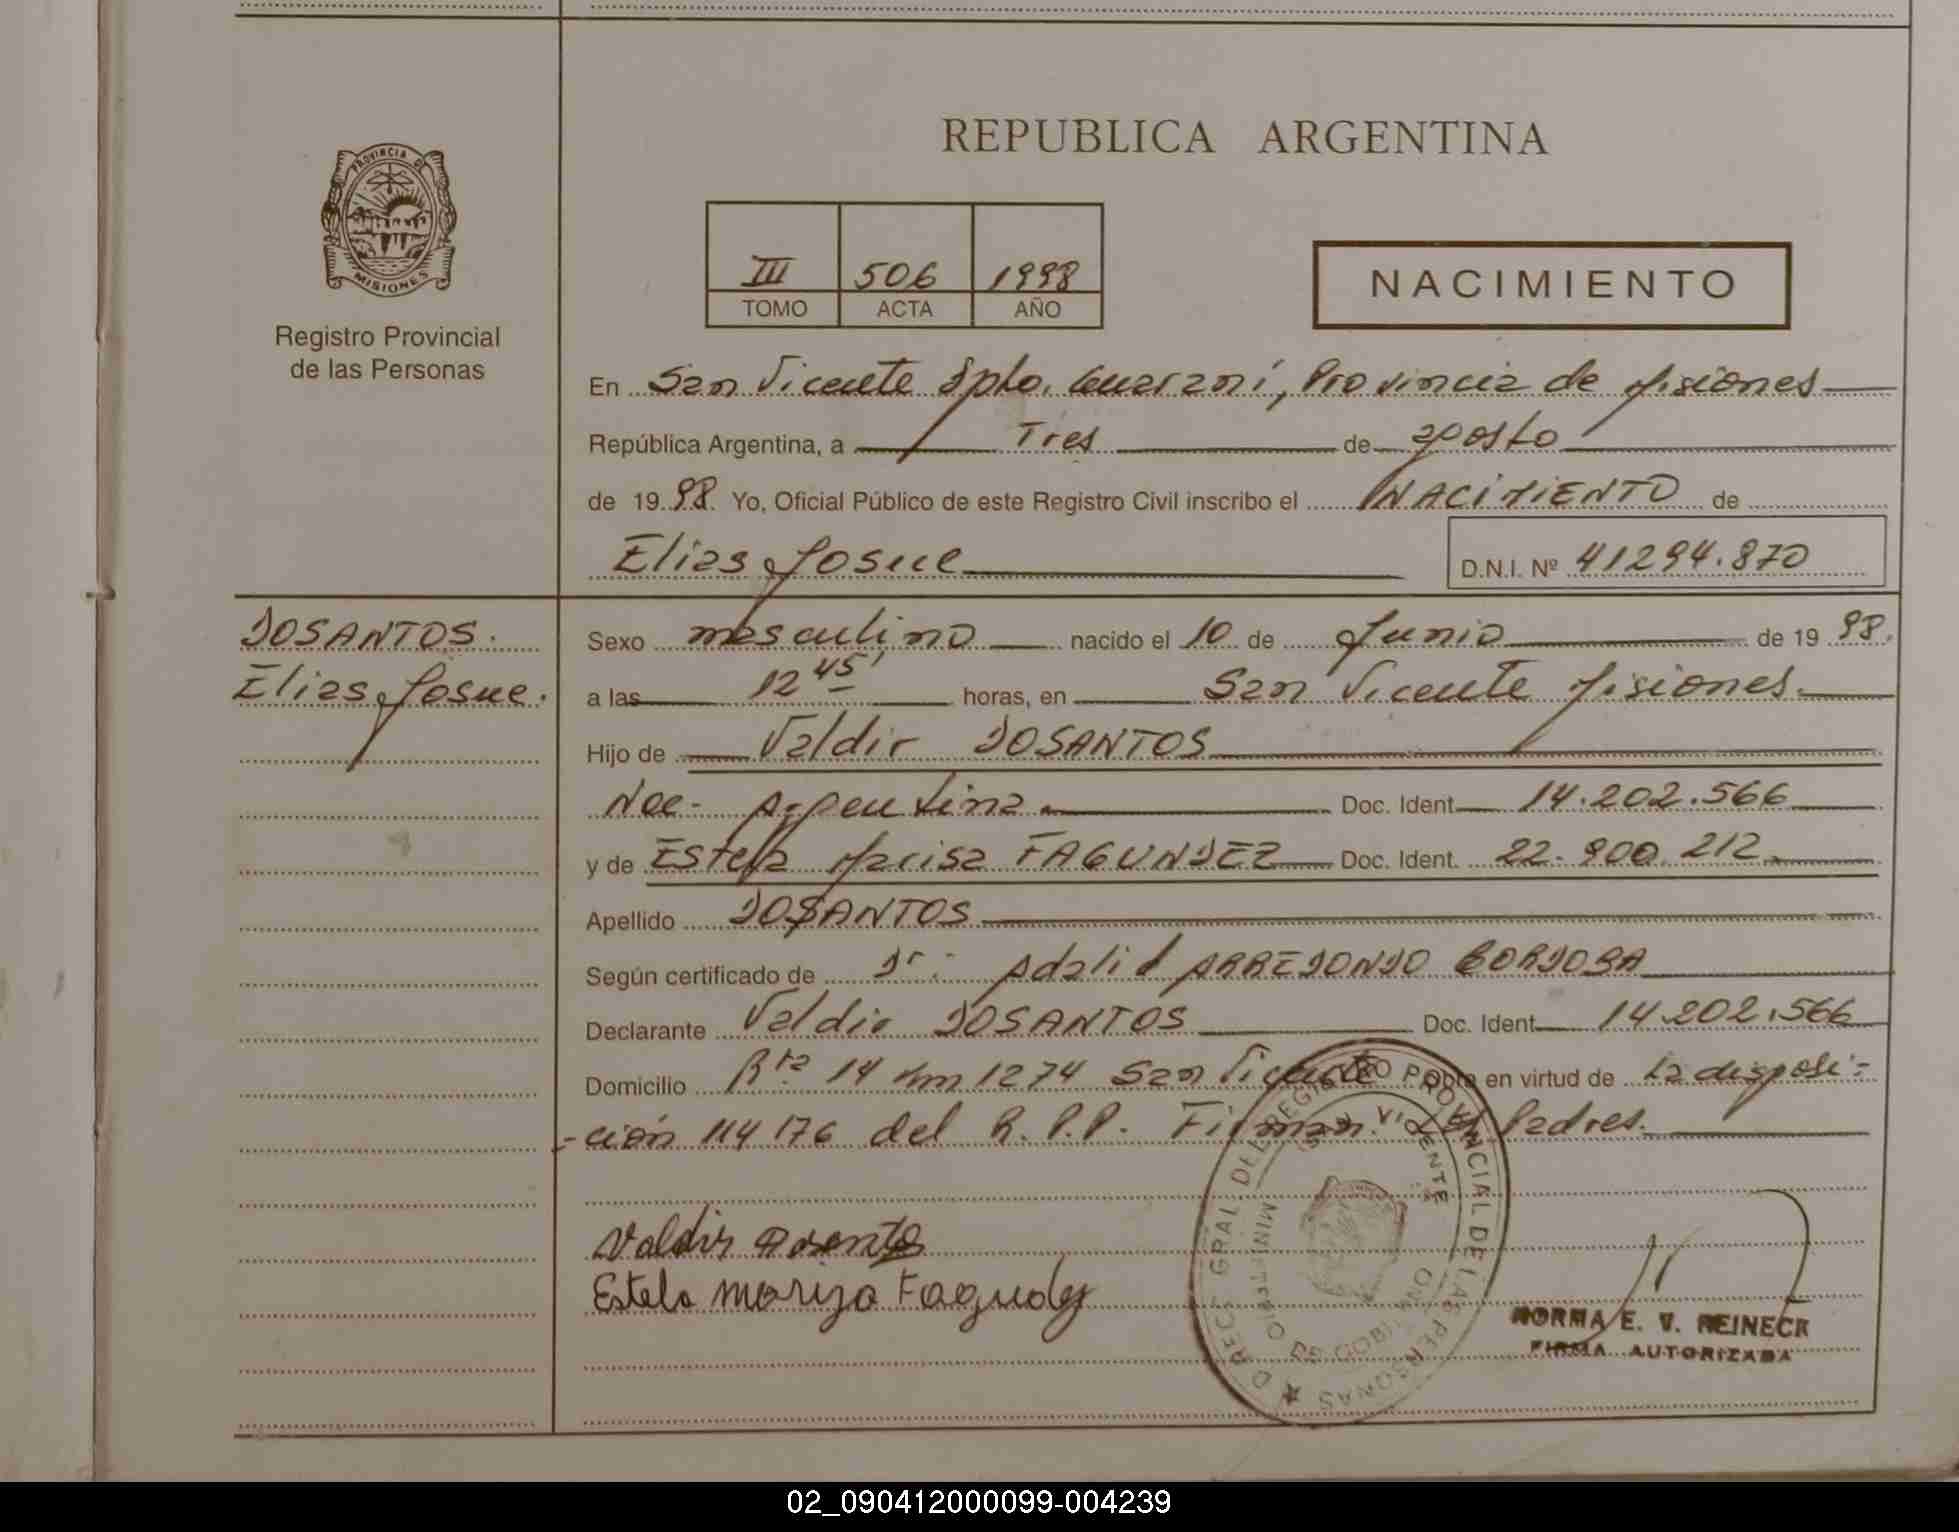 REPUBLICA ARGENTINA
PROVINCIA DE
MISIONES
Registro Provincial
de las Personas
III 506 1998
TOMO ACTA AÑO
NACIMIENTO
En San Vicente Dpto. Guaraní, Provincia de Misiones
República Argentina, a Tres de agosto
de 1998. Yo, Oficial Público de este Registro Civil inscribo el NACIMIENTO de
Elias Josue D.N.I. Nº 41294.870
DOSANTOS.
Elias Josue.
Sexo masculino nacido el 10 de Junio de 1998.
a las 12 45' horas, en San Vicente Misiones.
Hijo de Valdir DOSANTOS
Nac- Argentina Doc. Ident. 14.202.566
y de Estela Marisa FAGUNDEZ Doc. Ident. 22.900.212.
Apellido DOSANTOS
Según certificado de Dr. Adalid ARREDONDO CORDOBA
Declarante Valdir DOSANTOS Doc. Ident. 14.202.566
Domicilio Rta 14 Km 1274 San Vicente Obra en virtud de La disposi-
-ción 114176 del R.P.P. Firman Los Padres.
Valdir
Estela Mariza
DIRECC GRAL DEL REGISTRO PROVINCIAL DE LAS PERSONAS
MINISTERIO DE GOBIERNO
VICENTE
NORMA E. V. REINECK
FIRMA AUTORIZADA
02_090412000099-004239